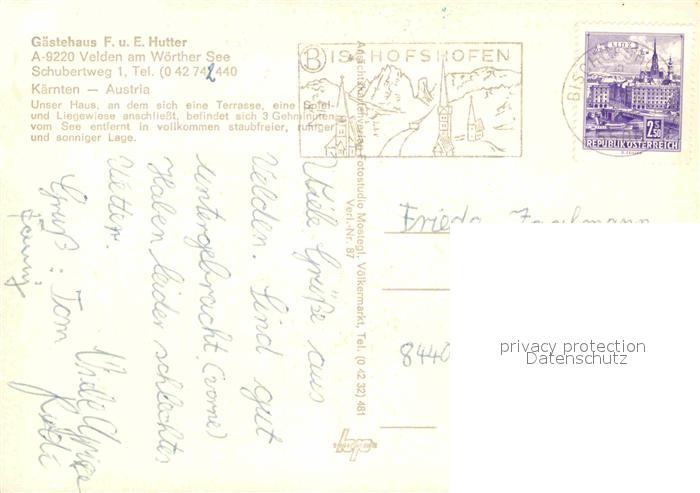 Gästehaus F. u. E. Hutter
A-9220 Velden am Wörther See
Schubertweg 1, Tel. (0 42 74) 2 440
Kärnten — Austria
Unser Haus, an dem sich eine Terrasse, eine Spiel-
und Liegewiese anschließt, befindet sich 3 Gehminuten
vom See entfernt in vollkommen staubfreier, ruhiger
und sonniger Lage.
BISCHOFSHOFEN
LINZ
2.50
REPUBLIK ÖSTERREICH
Ansichtskartenverlag Fotostudio Mostegl, Völkermarkt, Tel. (0 42 32) 481
Verl.-Nr. 87
Viele Grüße aus
Velden. Sind gut
untergebracht (vorne)
Haben leider schlechtes
Wetter.
Gruß: Tom
Fanny
Viele Grüße
Rudi
Frieda
8440
privacy protection
Datenschutz